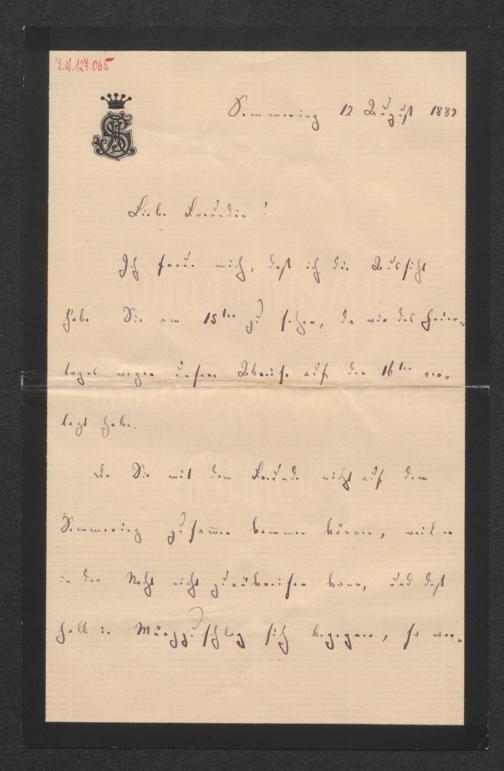 J.N. 127.065
Semmering 12 August 1889
Liebe Freundin!
Ich freue mich, daß ich die Aussicht
habe Sie am 15ten zu sehen, da wir des Feier-
tages wegen unsere Abreise auf den 16ten ver-
legt habe.
Da Sie mit dem Freunde nicht auf dem
Semmering zusammen kommen können, weil er
in der Nacht nicht zurückreisen kann, und deß
halb in Mürzzuschlag sich begegnen, so wer-